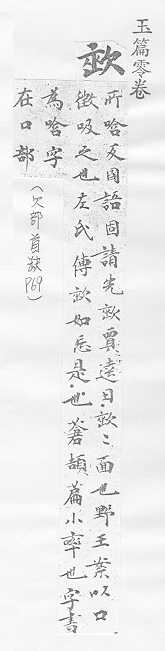 玉篇零卷
歃
所唅反國語曰請先歃賈逵曰歃〻面也野王案以口
微吸之也左氏傳歃如忘是也蒼頡篇小率也字書
為唅字
在口部
(欠部首歃 P69)